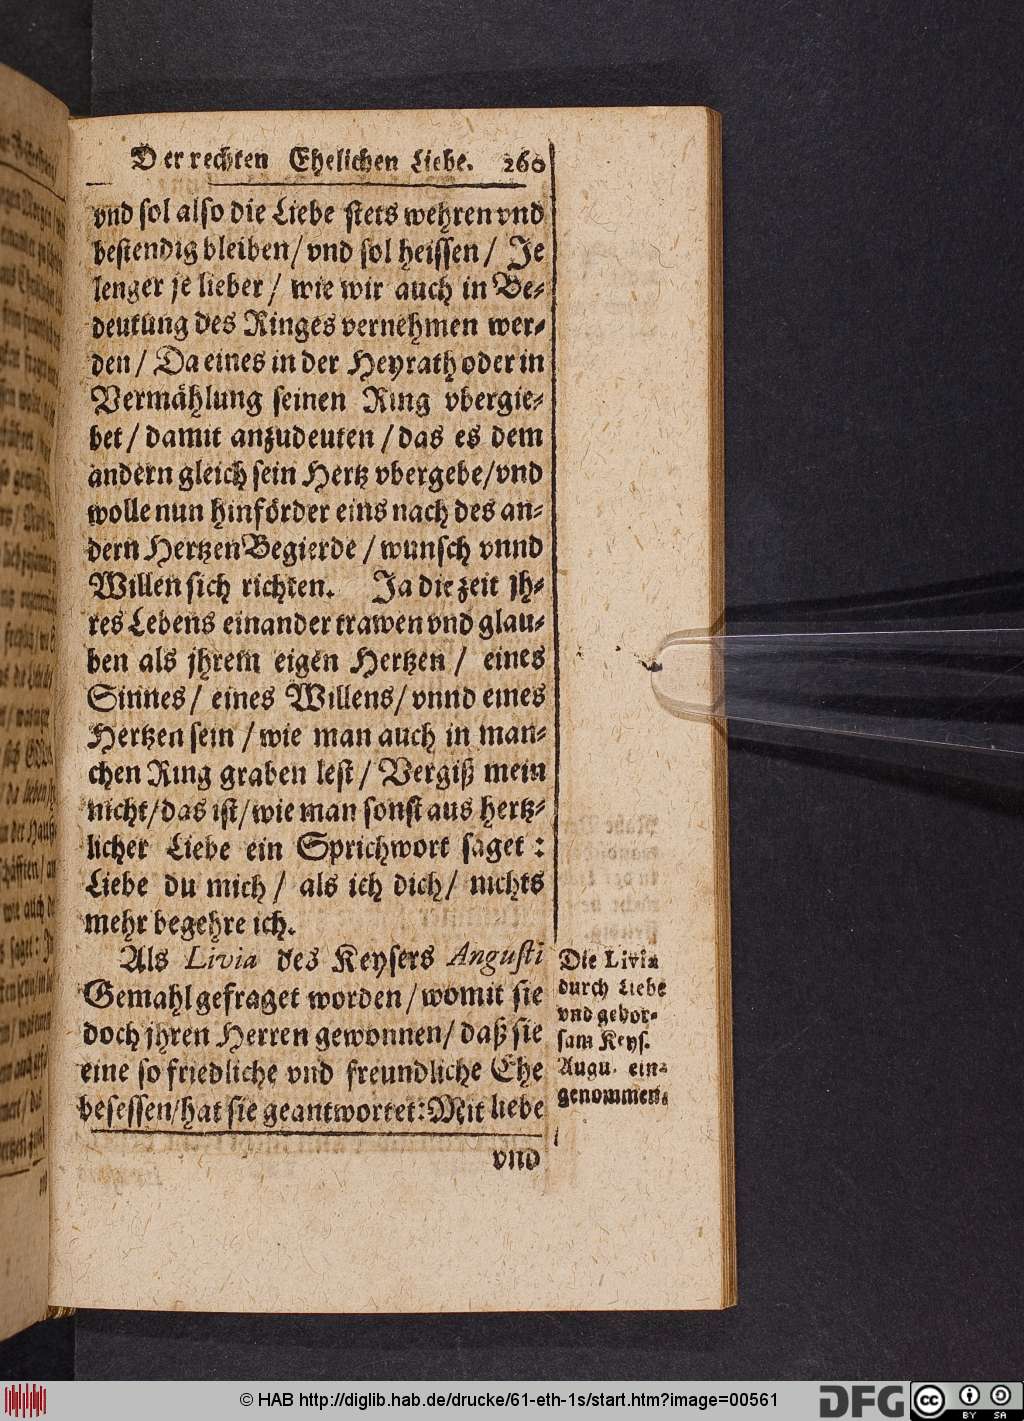 Der rechten Ehelichen Liebe. 260
vnd sol also die Liebe stets wehren vnd
bestendig bleiben/ vnd sol heissen/ Je
lenger je lieber/ wie wir auch in Be-
deutung des Ringes vernehmen wer-
den/ Da eines in der Heyrath oder in
Vermählung seinen Ring vbergie-
bet/ damit anzudeuten/ das es dem
andern gleich sein Hertz vbergebe/ vnd
wolle nun hinförder eins nach des an-
dern Hertzen Begierde/ wunsch vnnd
Willen sich richten. Ja die zeit jh-
res Lebens einander trawen vnd glau-
ben als jhrem eigen Hertzen/ eines
Sinnes/ eines Willens/ vnnd eines
Hertzen sein/ wie man auch in man-
chen Ring graben lest/ Vergiß mein
nicht/ das ist/ wie man sonst aus hertz-
licher Liebe ein Sprichwort saget:
Liebe du mich/ als ich dich/ nichts
mehr begehre ich.
Als Livia des Keysers Angusti
Gemahl gefraget worden/ womit sie
doch jhren Herren gewonnen/ daß sie
eine so friedliche vnd freundliche Ehe
besessen/ hat sie geantwortet: Mit liebe
vnd
Die Livia
durch Liebe
vnd gehor-
sam Keys.
Augu. ein-
genommen.
© HAB http://diglib.hab.de/drucke/61-eth-1s/start.htm?image=00561
DFG
cc
BY SA